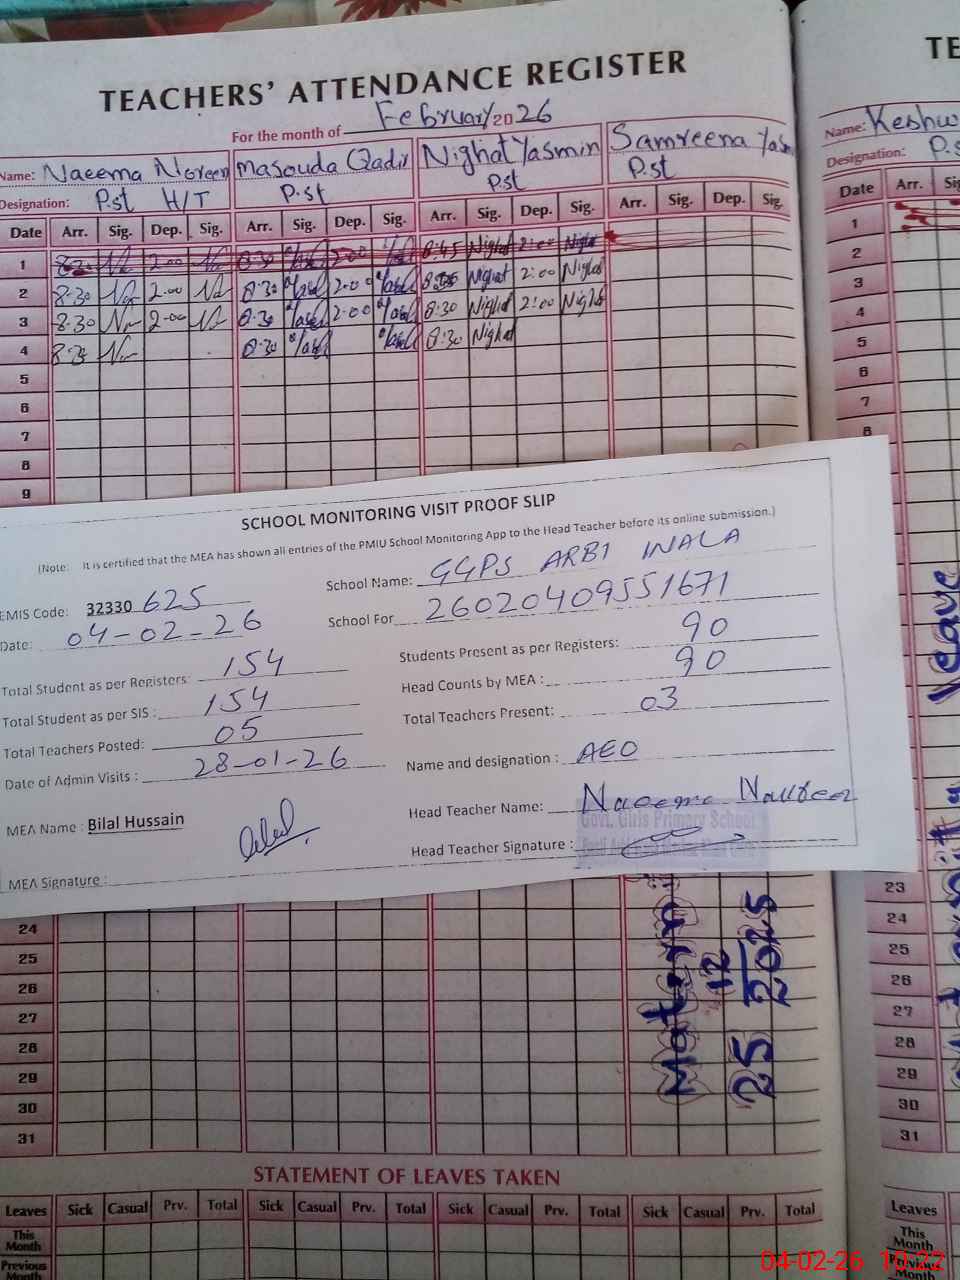 TEACHERS' ATTENDANCE REGISTER
For the month of February 2026
Name: Naeema Noreen Masouda Qadir Nighat Yasmin Samreena Yasm
Designation: P.st H/T P.st P.st P.st
Date Arr. Sig. Dep. Sig. Arr. Sig. Dep. Sig. Arr. Sig. Dep. Sig. Arr. Sig. Dep. Sig.
1 8:30 2:00 8:30 2:00 8:45 Nighat 2:00 Nighat
2 8:30 2:00 8:30 2:00 Nighat 2:00 Nighat
3 8:30 2:00 8:30 2:00 8:30 Nighat 2:00 Nighat
4 8:30 8:30 8:30 Nighat
5
6
7
8
9
TE
Name: Keshw
Designation: P.s
Date Arr. Sig
1
2
3
4
5
6
7
8
leave
SCHOOL MONITORING VISIT PROOF SLIP
(Note: It is certified that the MEA has shown all entries of the PMIU School Monitoring App to the Head Teacher before its online submission.)
EMIS Code: 32330 625
School Name: GGPS ARBI INALA
Date: 04-02-26
School For 26020409551671
Total Student as per Registers: 154
Students Present as per Registers: 90
Total Student as per SIS : 154
Head Counts by MEA : 90
Total Teachers Posted: 05
Total Teachers Present: 03
Date of Admin Visits : 28-01-26
Name and designation : AEO
MEA Name : Bilal Hussain
Head Teacher Name: Naeema Noureen
Govt. Girls Primary School
MEA Signature :
Head Teacher Signature :
24
25
26
27
28
29
30
31
25 12 2025
23
24
25
26
27
28
29
30
31
STATEMENT OF LEAVES TAKEN
Leaves Sick Casual Prv. Total Sick Casual Prv. Total Sick Casual Prv. Total Sick Casual Prv. Total
This Month
Previous Month
Leaves
This Month
Previous Month
04-02-26 10:22